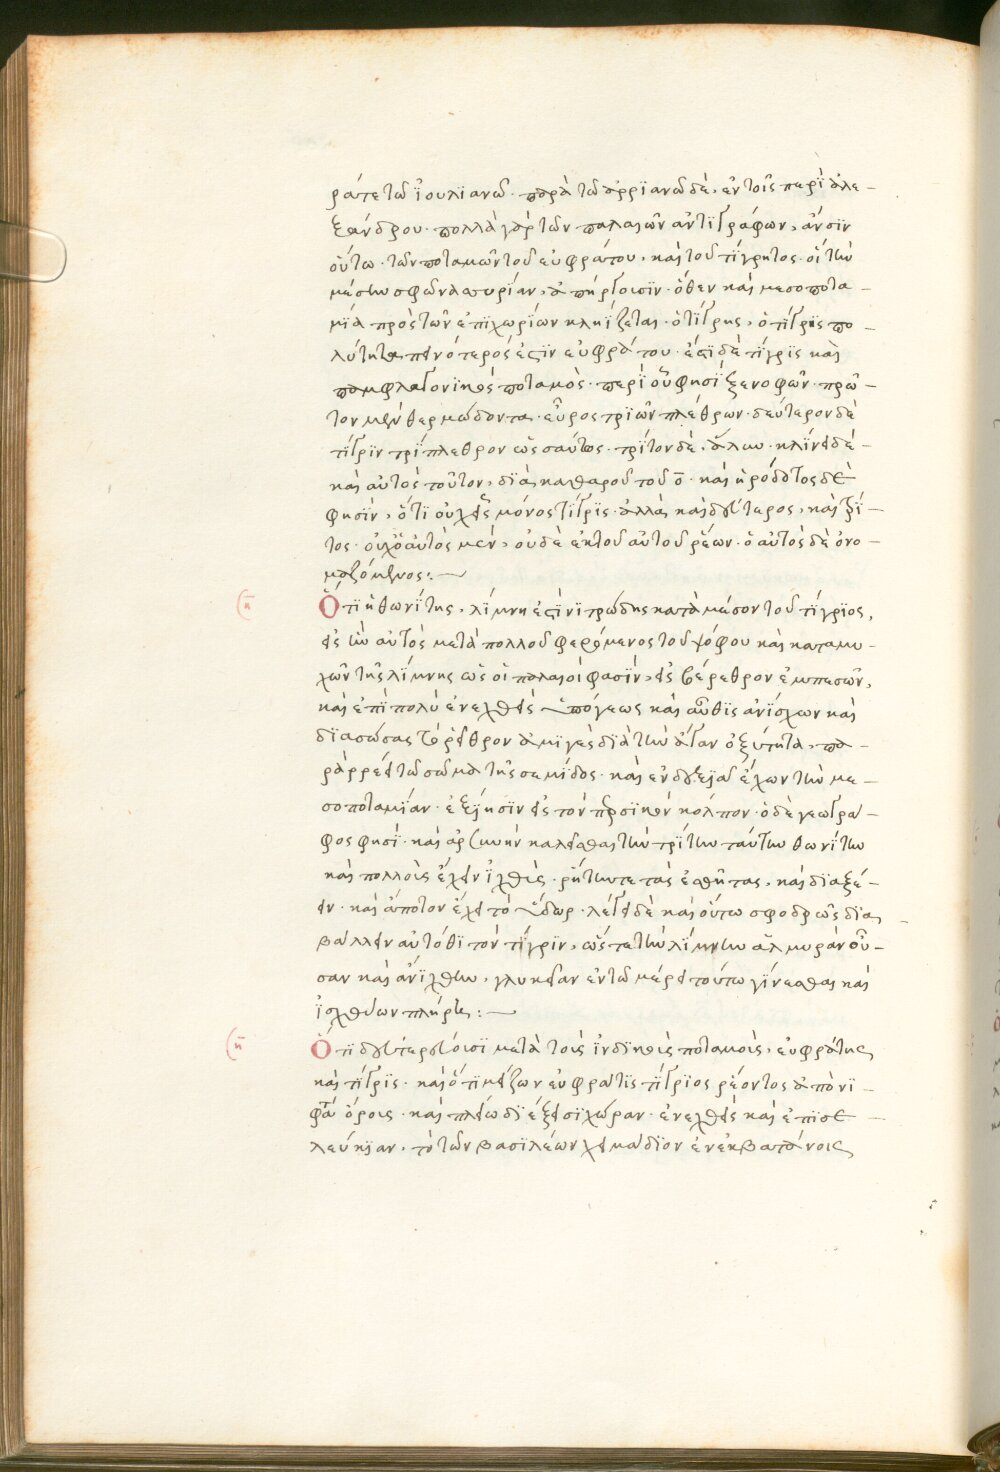 ράτε τῶ ἰουλιανῶ· παρὰ τῶ ἀρριανῶ δὲ, ἐν τοῖς περὶ ἀλε-
ξάνδρου· πολλὰ γὰρ τῶν παλαιῶν ἀντιγράφων, ἀνσὶν
οὕτω· τῶν ποταμῶν τοῦ εὐφράτου, καὶ τοῦ τίγρητος· οἳ τὴν
μέσην σφῶν ἀσσυρίαν, ἀπήργουσιν· ὅθεν καὶ μεσοποτα-
μία πρὸς τῶν ἐπιχωρίων κληίζεται· ὁ τίγρης, ὁ τίγρις πο-
λύ τι ταπεινότερός ἐστιν εὐφράτου· ἔστι δὲ τίγρις καὶ
παμφλαγονικὸς ποταμὸς· περὶ οὗ φησὶ ξενοφῶν· πρῶ-
τον μὲν θερμώδοντα· εὖρος τριῶν πλέθρων· δεύτερον δὲ
τίγριν τρίπλεθρον ὡσαύτως· τρίτον δὲ, ἅλυν· κλίνει δὲ
καὶ αὐτὸς τοῦτον, διὰ καθαροῦ τοῦ ο· καὶ ἡρόδοτος δέ
φησὶν, ὅτι οὐχ εἷς μόνος τίγρις· ἀλλὰ καὶ δεύτερος, καὶ τρί-
τος· οὐχ ὁ αὐτὸς μὲν, οὐδὲ ἐκ τοῦ αὐτοῦ ῥέων· ὁ αὐτὸς δὲ ὀνο-
μαζόμενος:—
(η Ὅτι ἡ θωνῖτης, λίμνη ἐστὶ νιτρώδης κατὰ μέσον τοῦ τίγριος,
εἰς ἣν αὐτὸς μετὰ πολλοῦ φερόμενος τοῦ ψόφου καὶ κατα μυ-
χῶν τῆς λίμνης ὡς οἱ παλαιοί φασὶν, εἰς βέρεθρον ἐμπεσῶν,
καὶ ἐπὶ πολὺ ἐνεχθεὶς ὑπόγεως καὶ αὖθις ἀνίσχων καὶ
διασώσας τὸ ῥεῖθρον ἀμιγὲς διὰ τὴν ἄγαν ὀξύτητα, πα-
ραρρεῖ τῶ σώματι τῆς σεμίδος· καὶ ἐν δεξιᾶ ἔχων τὴν με-
σοποταμίαν· ἐξίησιν εἰς τὸν περσικὸν κόλπον· ὁ δὲ γεωγρά-
φος φησί· καὶ ἀρσηνὴν καλεῖσθαι τὴν τρίτην ταύτην θωνῖτιν
καὶ πολλοὺς ἔχειν ἰχθῦς· ῥήτην τε τὰς ἐσθῆτας, καὶ διαξέ-
ειν· καὶ ἄποτον ἔχει τὸ ὕδωρ· λέγει δὲ καὶ οὕτω σφοδρῶς δια
βάλλειν αὐτόθι τὸν τίγριν, ὥστε τὴν λίμνην ἁλμυρὰν οὖ-
σαν καὶ ἄνιχθυν, γλυκεῖαν ἐν τῶ μέρει τούτω γίνεσθαι καὶ
ἰχθύων πλήρης:—
(η Ὅτι δευτερεύουσι μετὰ τοὺς ἰνδικοὺς ποταμοὺς, εὐφράτης
καὶ τίγρις· καὶ ὅτι μείζων εὐφράτις τίγριος ῥέοντος ἀπὸ νι-
φάτου ὄρους· καὶ πλείω διέξεισι χώραν· ἐνεχθεὶς καὶ ἐπὶ σε
λεύκιαν· τὸ τῶν βασιλέων χειμάδιον ἐν ἐκβατάνοις